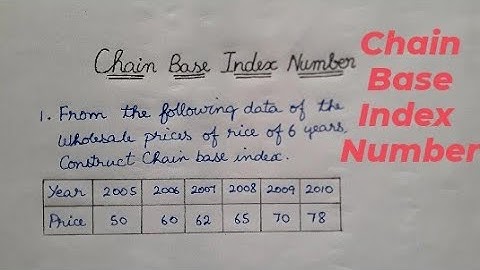 Chain Base Index Number
Chain
Base
Index
Number
1. From the following data of the
wholesale prices of rice of 6 years,
Construct Chain base index.
Year 2005 2006 2007 2008 2009 2010
Price 50 60 62 65 70 78